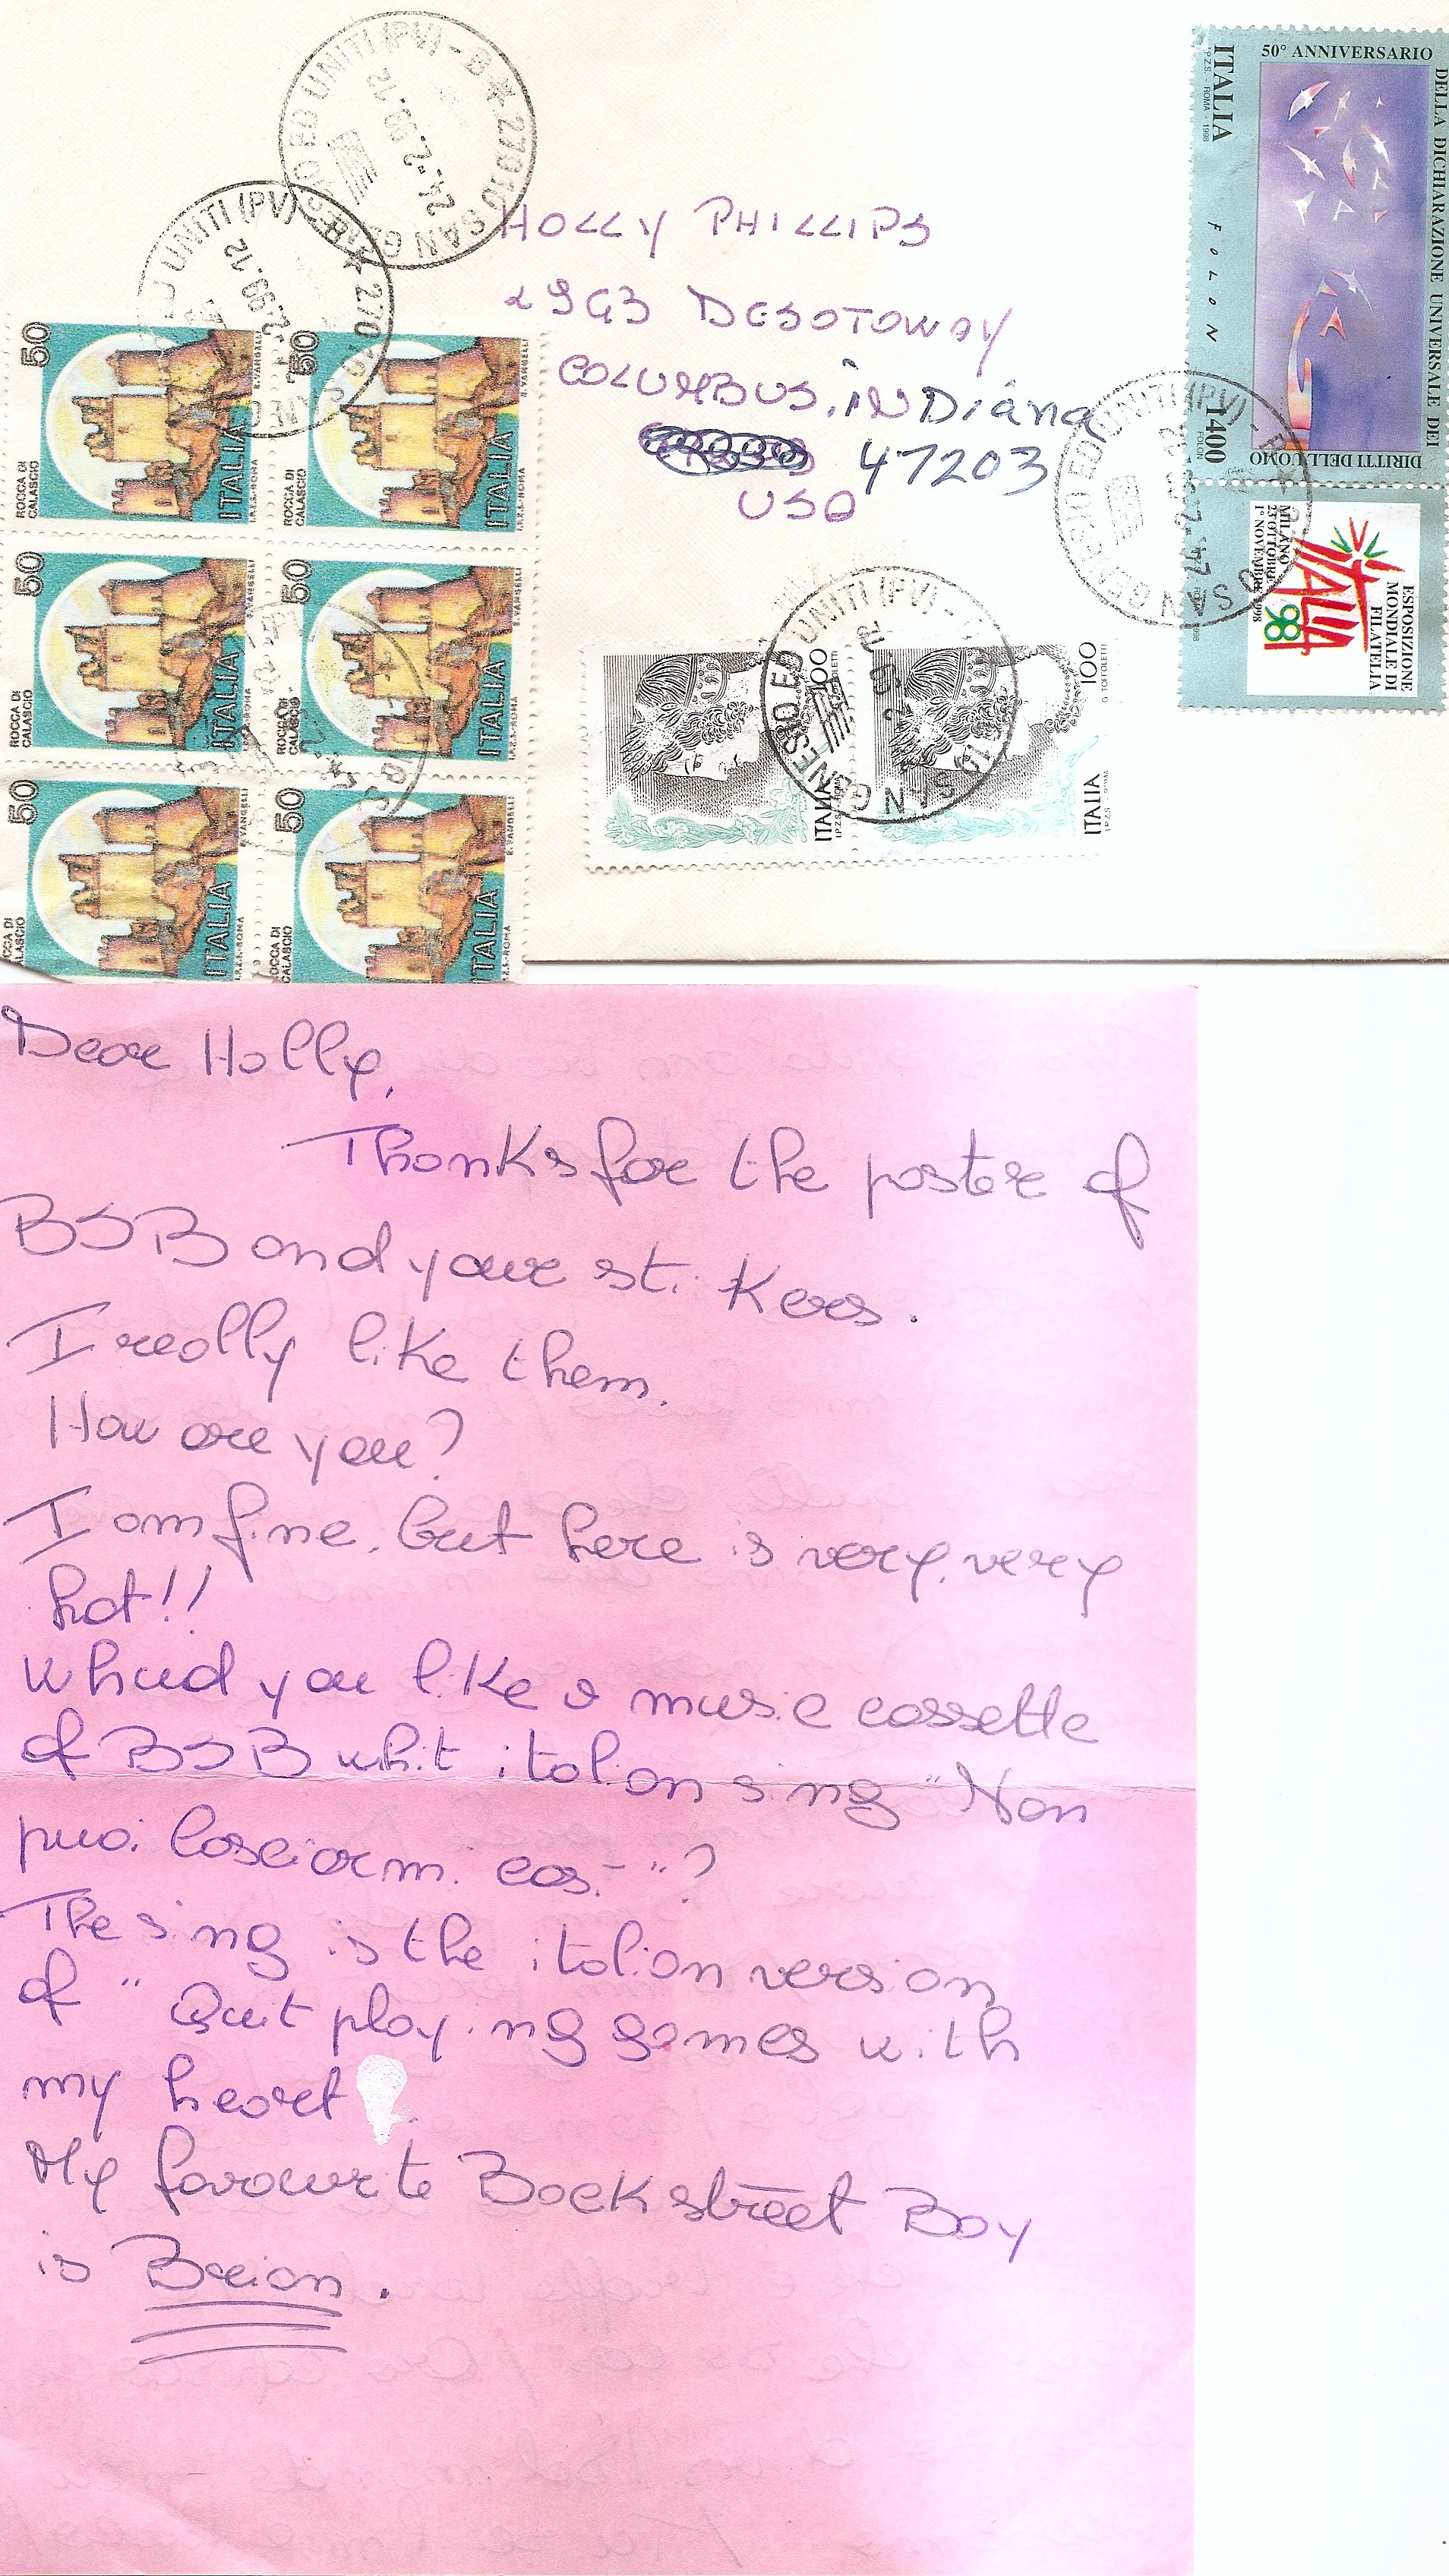 HOLLY PHILLIPS
2963 DESOTOWAY
COLUMBUS, iNDiana
47203
USA
50° ANNIVERSARIO
DELLA DICHIARAZIONE UNIVERSALE DEI
DIRITTI DELL'UOMO
ITALIA
I.P.Z.S. - ROMA - 1998
FOLON
1400
ESPOSIZIONE
MONDIALE DI
FILATELIA
ITALIA
98
MILANO
23 OTTOBRE
1° NOVEMBRE 1998
27010 SAN GENESIO ED UNITI (PV) - B
24.-2.99.12
27010 SAN GENESIO ED UNITI (PV) - B
2.99.12
SAN GENESIO ED UNITI (PV) - B
SAN GENESIO ED UNITI (PV) -
50
ROCCA DI
CALASCIO
ITALIA
I.P.Z.S.-ROMA
E. VANGELLI
50
ROCCA DI
CALASCIO
ITALIA
I.P.Z.S.-ROMA
E. VANGELLI
50
ROCCA DI
CALASCIO
ITALIA
I.P.Z.S.-ROMA
E. VANGELLI
50
ROCCA DI
CALASCIO
ITALIA
I.P.Z.S.-ROMA
E. VANGELLI
50
ITALIA
I.P.Z.S.-ROMA
E. VANGELLI
50
ROCCA DI
CALASCIO
ITALIA
I.P.Z.S.-ROMA
E. VANGELLI
100
ITALIA
100
G. TOFFOLETTI
ITALIA
Dear Holly,
Thanks for the poster of
BSB and your stiKers.
I really like them.
How are you?
I am fine, but here is very, very
hot!!
whud you like a music cassette
of BSB whit italian sing "Non
puoi lasciarmi così "?
The sing is the italian version
of " Quit playing games with
my heart
My favourite Backstreet Boy
is Brian.